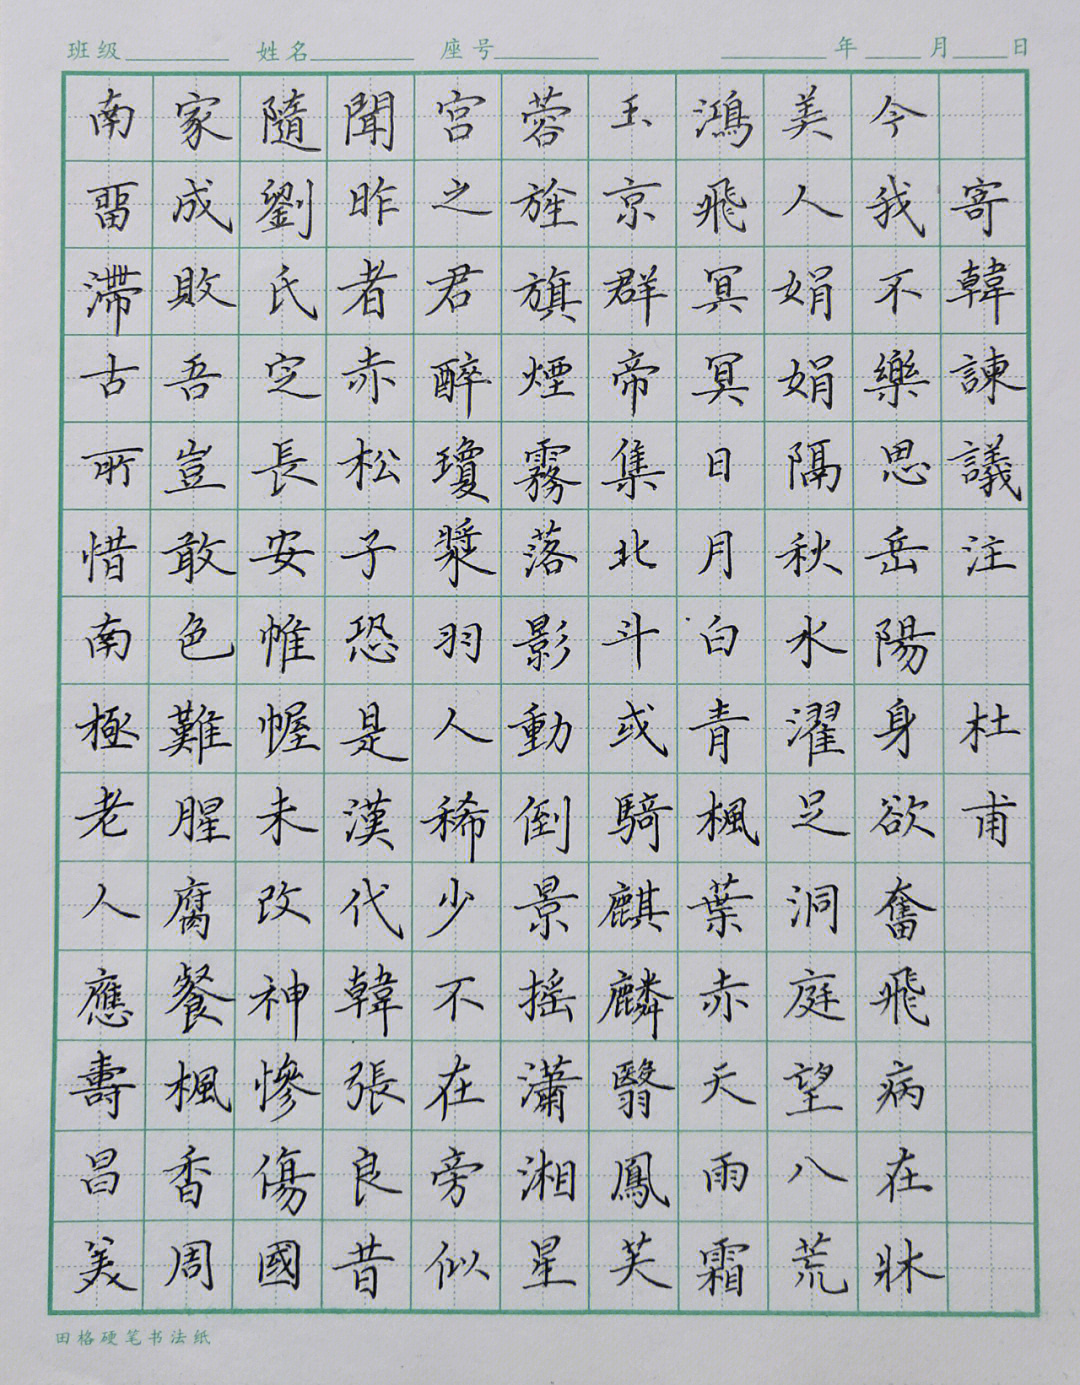 班级 姓名 座号 年 月 日
寄韓諫議注 杜甫
今我不樂思岳陽身欲奮飛病在牀
美人娟娟隔秋水濯足洞庭望八荒
鴻飛冥冥日月白青楓葉赤天雨霜
玉京群帝集北斗或騎麒麟翳鳳芙
蓉旌旗煙霧落影動倒景摇瀟湘星
宮之君醉瓊漿羽人稀少不在旁似
聞昨者赤松子恐是漢代韓張良昔
隨劉氏定長安帷幄未改神慘傷國
家成敗吾豈敢色難腥腐餐楓香周
南留滯古所惜南極老人應壽昌美
田格硬笔书法纸